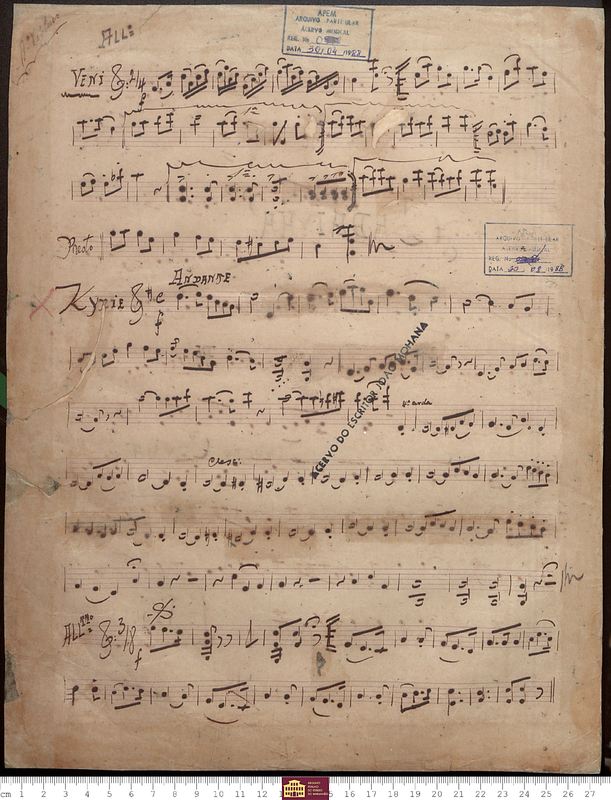 All:
APEM
ARQUIVO PARTICULAR
ACERVO MUSICAL
REG. No
DATA 30/04/1988
VENI 2/4
f
1ª
ARQUIVO PARTICULAR
ACERVO MUSICAL
REG. No
DATA 30 08 1988
ANDANTE
KYRIE
f
ACERVO DO ESCRITOR JOÃO MOHANA
4ª corda
Cresc:
ALLtto: 3/8
f
cm 1 2 3 4 5 6 7 8 9 10 11 12 13 15 16 17 18 19 20 21 22 23 24 25 26 27